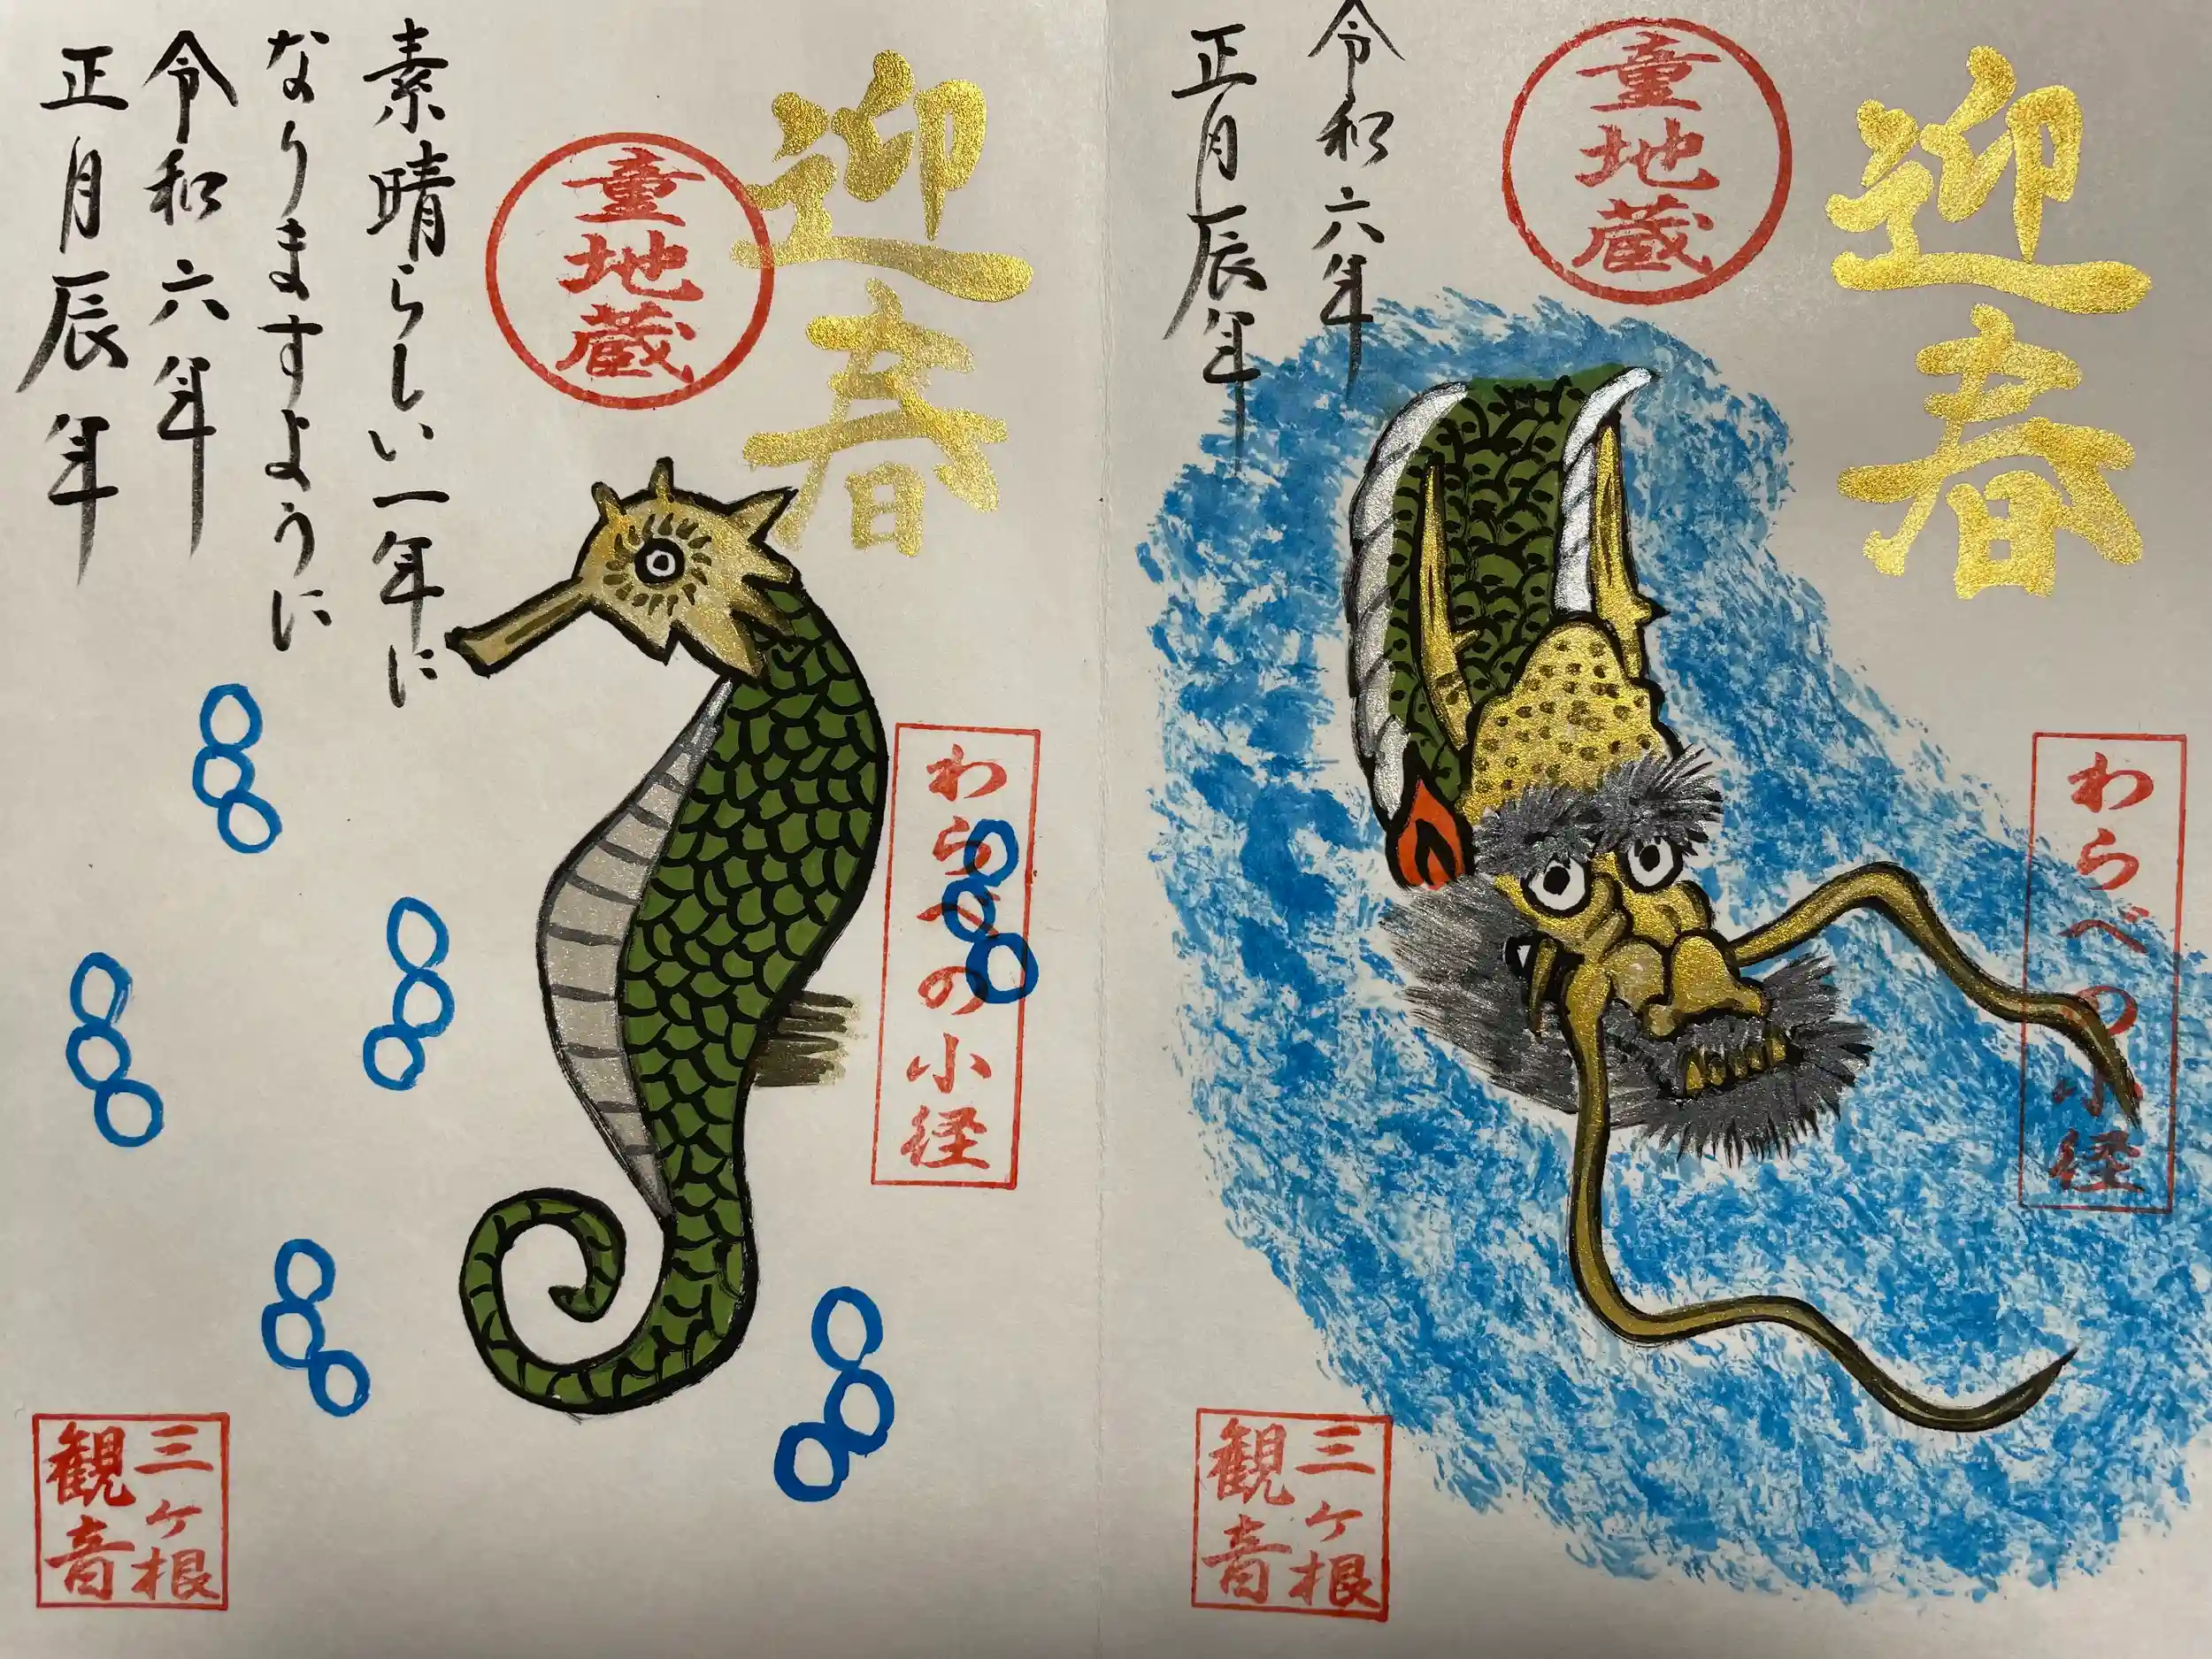 迎春
童地蔵
令和六年
正月辰年
わらべの小径
三ヶ根
観音
迎春
童地蔵
素晴らしい一年に
なりますように
令和六年
正月辰年
わらべの小径
三ヶ根
観音